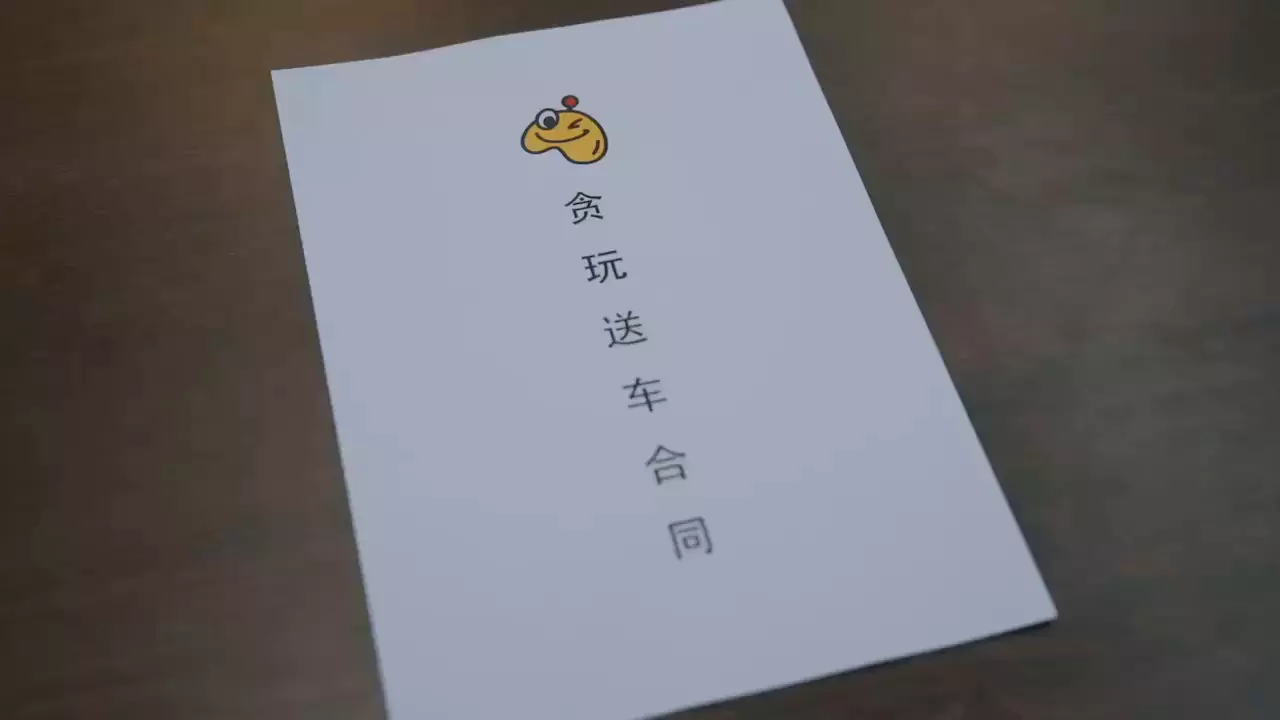 贪玩送车合同